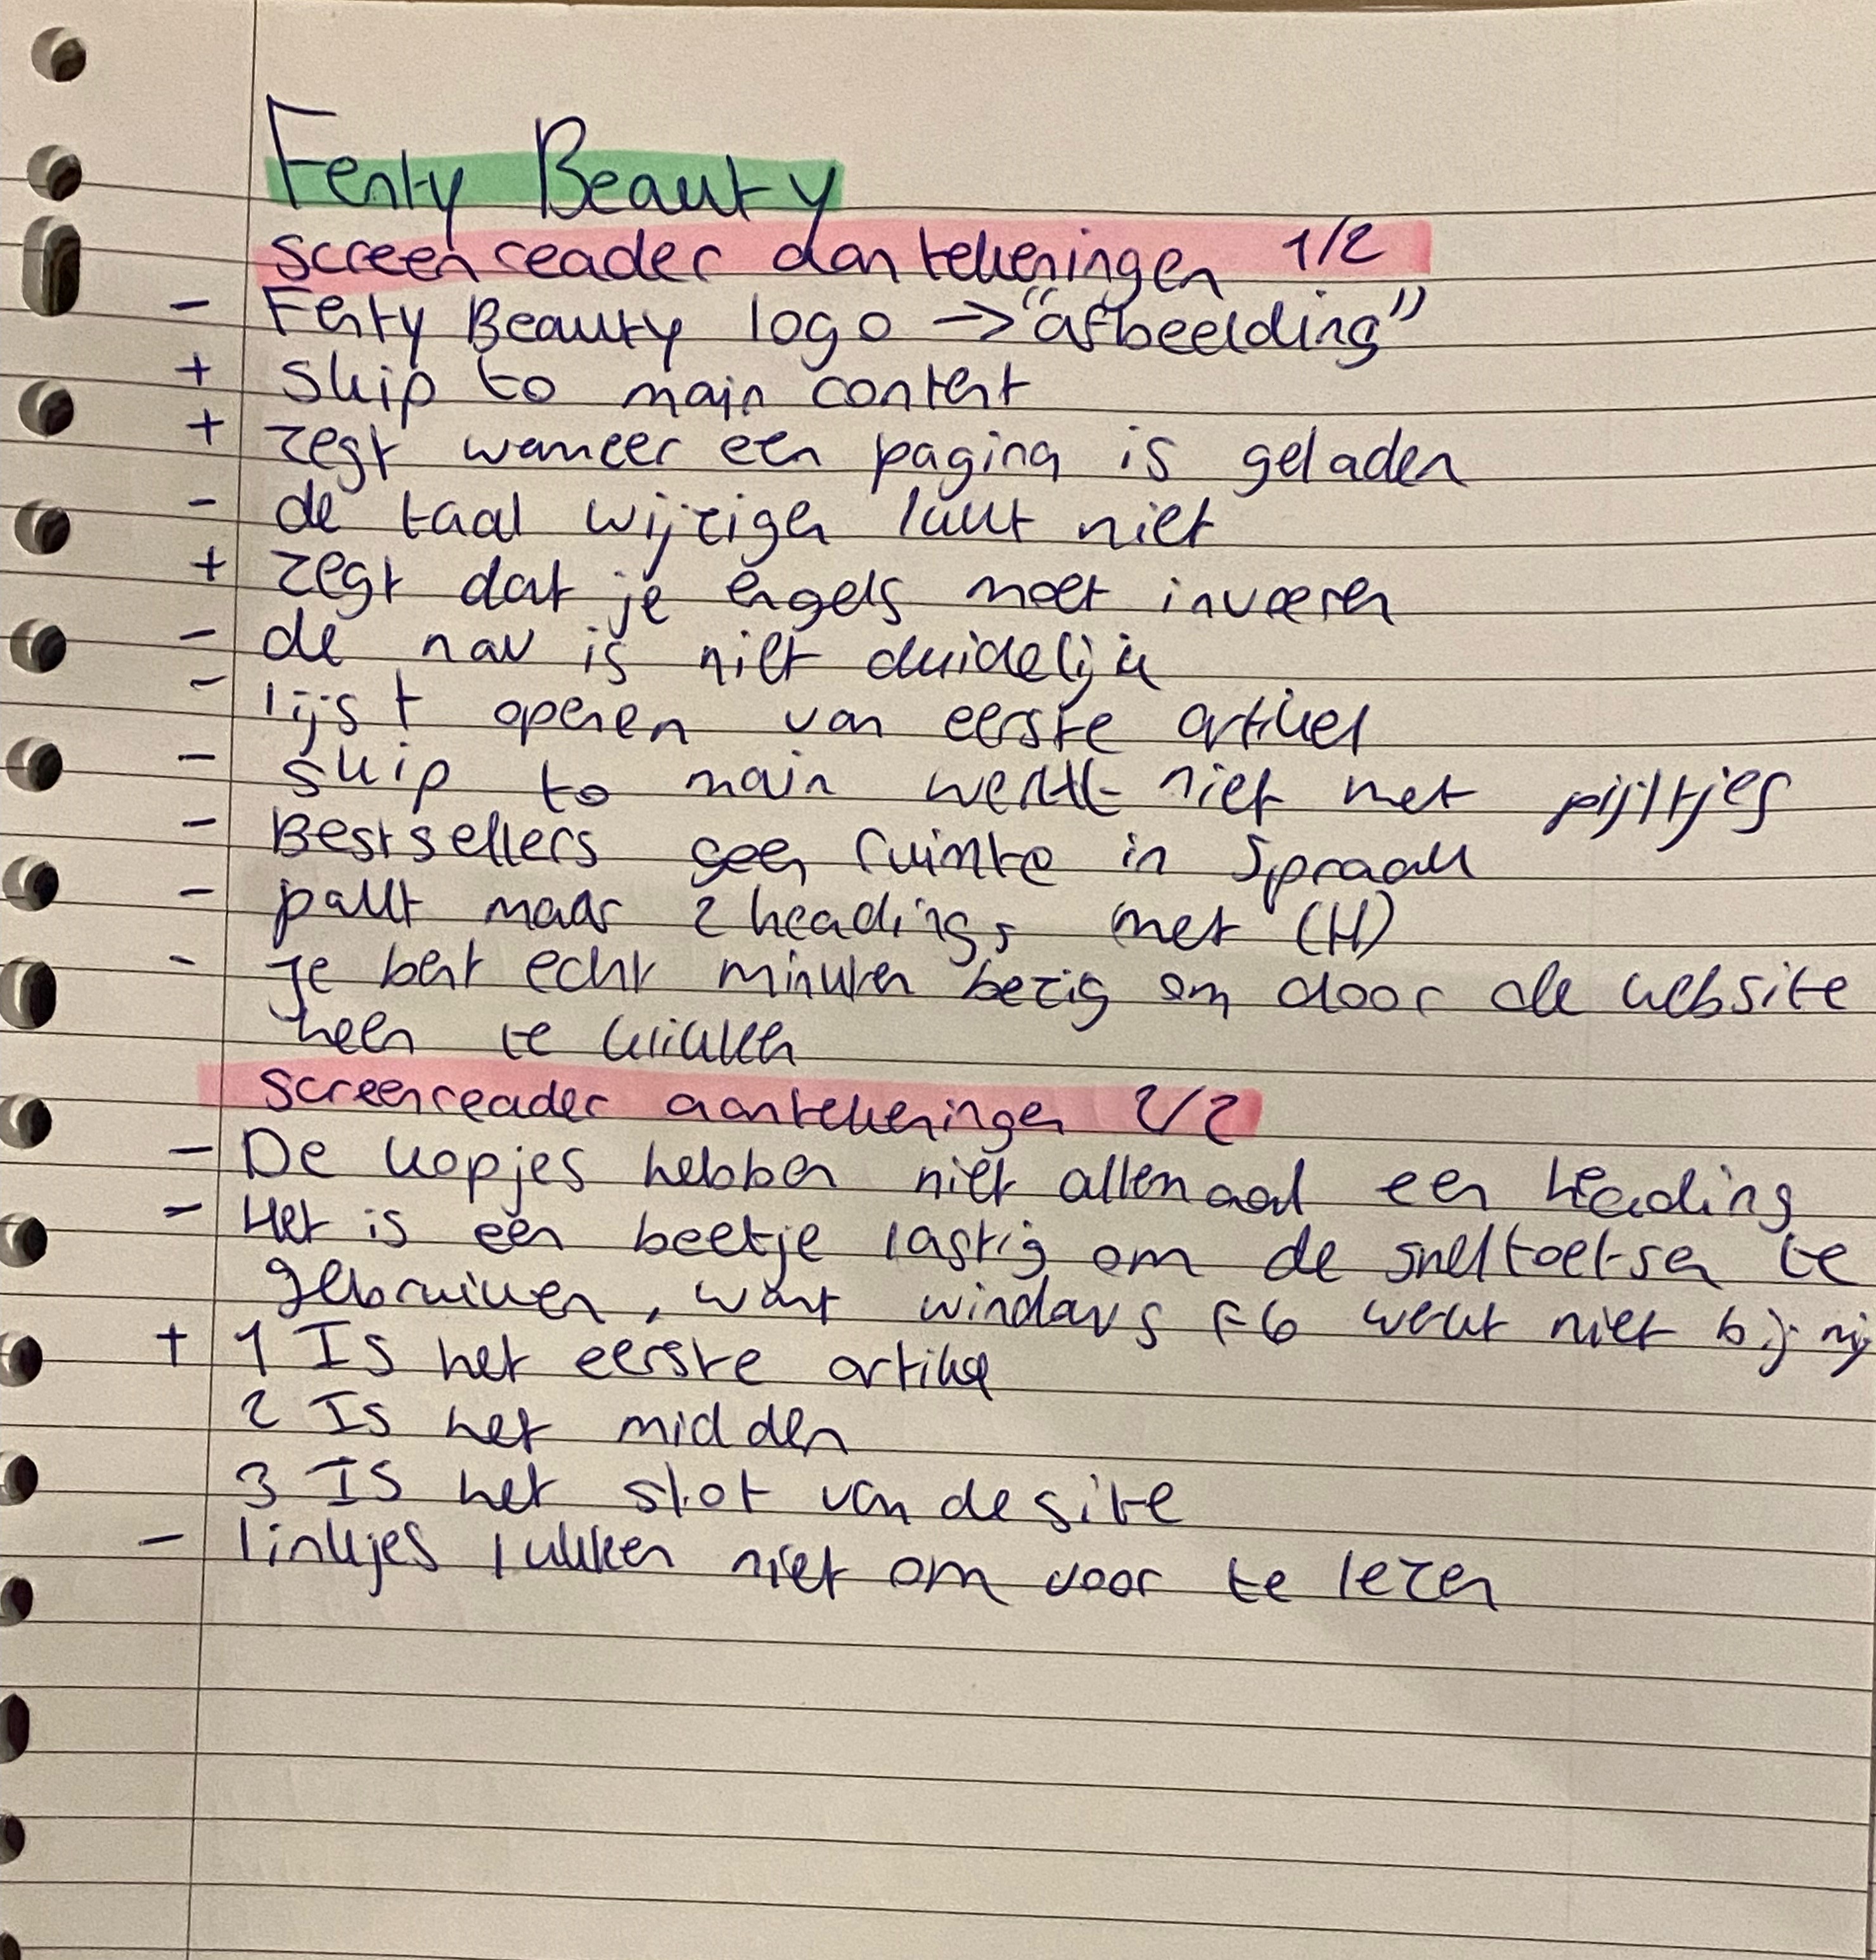 Fenty Beauty
screen reader aantekeningen 1/2
- Fenty Beauty logo → "afbeelding"
+ skip to main content
+ zegt wanneer een pagina is geladen
- de taal wijzigen lukt niet
+ zegt dat je engels moet invoeren
- de nav is niet duidelijk
- lijst openen van eerste artikel
- skip to main werkt niet met pijltjes
- Bestsellers geen ruimte in spraak
- pakt maar 2 headings met (H)
- Je bent echt minuten bezig om door de website
heen te klikken
screenreader aantekeningen 2/2
- De kopjes hebben niet allemaal een heading
- Het is een beetje lastig om de sneltoetsen te
gebruiken, want windows F6 werkt niet bij mij
+ 1 Is het eerste artikel
2 Is het midden
3 Is het slot van de site
- linkjes lukken niet om voor te lezen